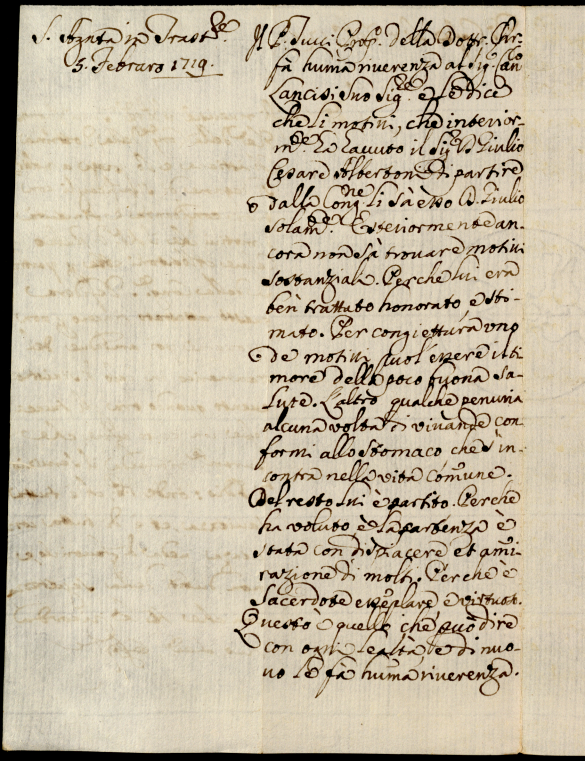 S. Agata in Trast.re
5. Febraro 1719.
Il P. Tucci Prep. della Dottr. Chr.
fà humã riverenza al Sig. Can.co
Lancisi Suo Sig.re e Le dice
che Li motivi, che interior-
m.te hà havuto il Sig. D. Giulio
Cesare Albertoni di partire
dalla Cong.ne Li sà esso D. Giulio
solam.te. Esteriormente an-
cora non sà trovare motivi
sostanziali. Perche lui era
ben trattato honorato e sti-
mato. Per congiettura uno
de motivi puol essere il ti-
more della poco buona sa-
lute. L'altro qualche penuria
alcuna volta di vivande con
formi allo stomaco che s'in-
contra nella vita comune.
Del resto lui è partito. Perche
ha voluto e La partenza è
stata con dispiacere et ami-
razione di molti. Perche è
Sacerdote esẽplare e virtuos.
Questo è quello che può dire
con ogni Lealtà, e di nuo-
vo Le fà humã riverenza.